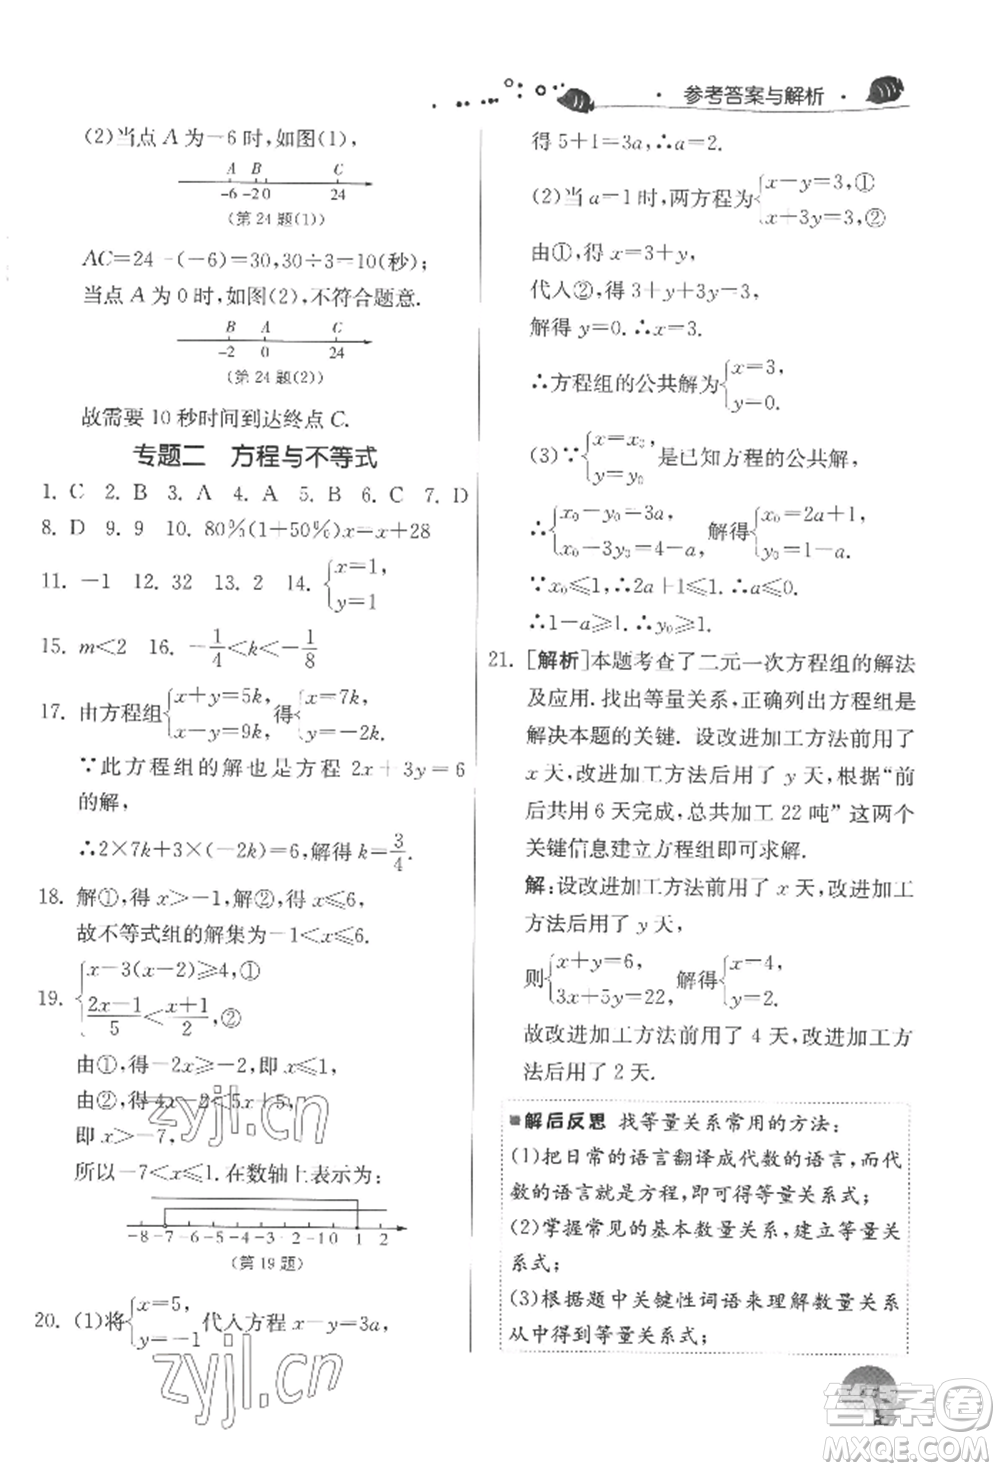 · 参考答案与解析 ·
(2)当点 A 为-6时,如图(1),
A B C
-6 -2 0 24
(第24题(1))
AC=24-(-6)=30,30÷3=10(秒);
当点 A 为0时,如图(2),不符合题意.
B A C
-2 0 24
(第24题(2))
故需要10秒时间到达终点 C.
专题二 方程与不等式
1. C 2. B 3. A 4. A 5. B 6. C 7. D
8. D 9. 9 10. 80%(1+50%)x=x+28
11. -1 12. 32 13. 2 14. {x=1, y=1
15. m<2 16. -1/4<k<-1/8
17. 由方程组{x+y=5k, x-y=9k, 得{x=7k, y=-2k.
∵此方程组的解也是方程 2x+3y=6
的解,
∴2×7k+3×(-2k)=6,解得 k=3/4.
18. 解①,得 x>-1,解②,得 x≤6,
故不等式组的解集为-1<x≤6.
19. {x-3(x-2)≥4,① (2x-1)/5<(x+1)/2,②
由①,得-2x≥-2,即 x≤1,
由②,得 4x-2<5x+5,
即 x>-7,
所以-7<x≤1.在数轴上表示为
-8 -7 -6 -5 -4 -3 -2 -1 0 1 2
(第19题)
20. (1)将{x=5, y=-1 代入方程 x-y=3a,
得 5+1=3a,∴a=2.
(2)当 a=1 时,两方程为{x-y=3,① x+3y=3,②
由①,得 x=3+y,
代入②,得 3+y+3y=3,
解得 y=0.∴x=3.
∴方程组的公共解为{x=3, y=0.
(3)∵{x=x₀, y=y₀ 是已知方程的公共解,
∴{x₀-y₀=3a, x₀+3y₀=4-a, 解得{x₀=2a+1, y₀=1-a.
∵x₀≤1,∴2a+1≤1.∴a≤0.
∴1-a≥1.∴y₀≥1.
21. [解析]本题考查了二元一次方程组的解法
及应用. 找出等量关系,正确列出方程组是
解决本题的关键. 设改进加工方法前用了
x 天,改进加工方法后用了 y 天,根据“前
后共用 6 天完成,总共加工 22 吨”这两个
关键信息建立方程组即可求解.
解:设改进加工方法前用了 x 天,改进加工
方法后用了 y 天,
则{x+y=6, 3x+5y=22, 解得{x=4, y=2.
故改进加工方法前用了 4 天,改进加工方
法后用了 2 天.
解后反思 找等量关系常用的方法:
(1)把日常的语言翻译成代数的语言,而代
数的语言就是方程,即可得等量关系式;
(2)掌握常见的基本数量关系,建立等量关
系式;
(3)根据题中关键性词语来理解数量关系
从中得到等量关系式;
zyjl.cn
zyjl.cn
答案圈
MXQE.COM